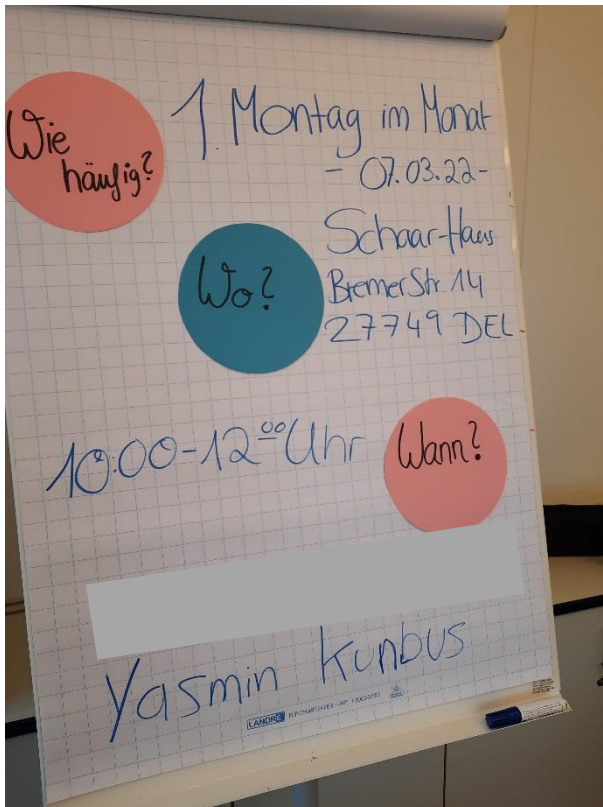 Wie
häufig?
1. Montag im Monat
- 07.03.22 -
Wo?
Schaar-Haus
Bremer Str. 14
27749 DEL
10:00-12⁰⁰ Uhr
Wann?
Yasmin Kunbus
LANDRÉ